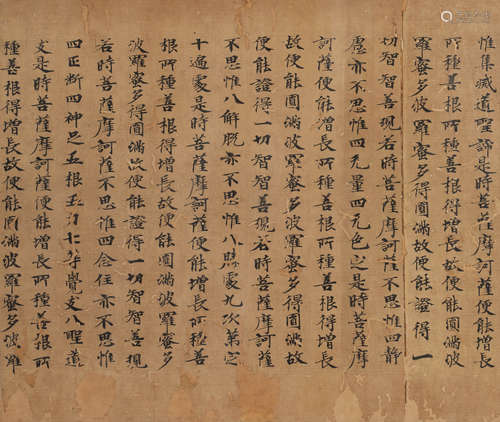 惟集滅道聖諦是時菩薩摩訶薩便能增長
所種善根所種善根得增長故便能圓滿波
羅蜜多波羅蜜多得圓滿故便能證得一
切智智善現若時菩薩摩訶薩不思惟四靜
慮亦不思惟四无量四无色定是時菩薩摩
訶薩便能增長所種善根所種善根得增長
故便能圓滿波羅蜜多波羅蜜多得圓滿故
便能證得一切智智善現若時菩薩摩訶薩
不思惟八解脫亦不思惟八勝處九次第定
十遍處是時菩薩摩訶薩便能增長所種善
根所種善根得增長故便能圓滿波羅蜜多
波羅蜜多得圓滿故便能證得一切智智善現
若時菩薩摩訶薩不思惟四念住亦不思惟
四正斷四神足五根五力七等覺支八聖道
支是時菩薩摩訶薩便能增長所種善根所
種善根得增長故便能圓滿波羅蜜多波羅